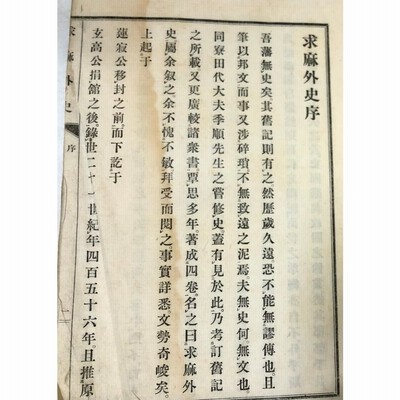 求麻外史序
吾藩無史矣其舊記則有之然歷歲久遠恐不能無謬傳也且
筆以邦文而事又涉碎瑣不無致遠之泥焉夫無史何無文也
同寮田代大夫季順先生之嘗修史蓋有見於此乃考訂舊記
之所載又更廣較諸衆書覃思多年著成四卷名之曰求麻外
史屬余叙之余不愧不敏拜受而閱之事實詳悉文勢奇峻矣
上起于
蓮寂公移封之前而下訖于
玄高公捐館之後錄世二十一世紀年四百五十六年且推原
求麻外史
序